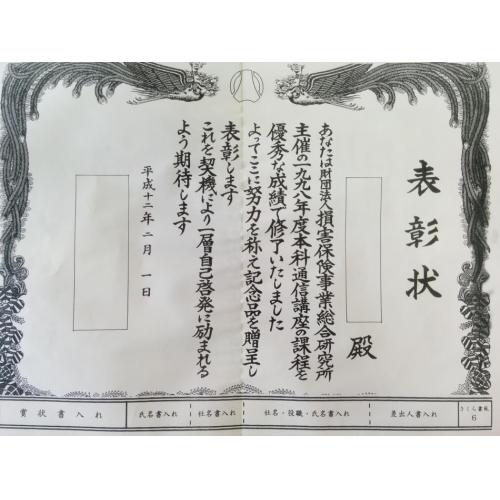 表彰状
殿
あなたは財団法人損害保険事業総合研究所
主催の一九九八年度本科通信講座の課程を
優秀な成績で修了いたしました
よってここに努力を称え記念品を贈呈し
表彰します
これを契機により一層自己啓発に励まれる
よう期待します
平成十二年二月一日
賞状書入れ
氏名書入れ
社名書入れ
社名・役職・氏名書入れ
差出人書入れ
さくら書苑
6